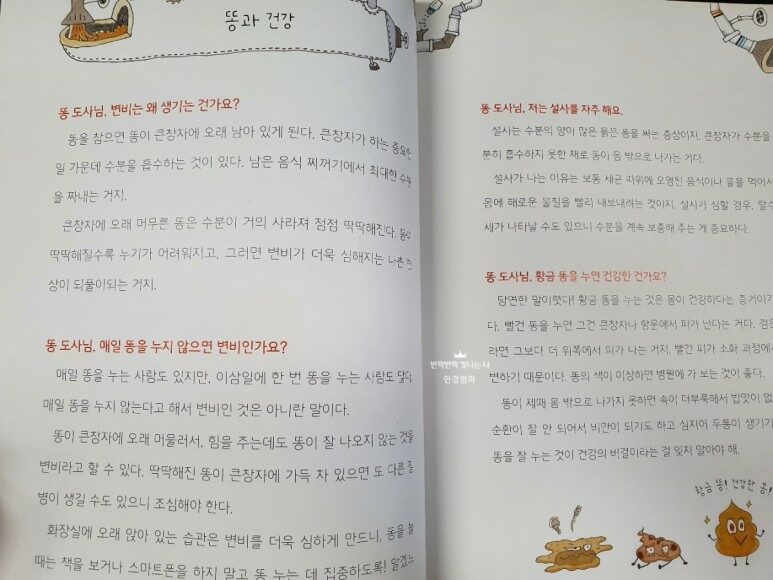 똥과 건강
똥 도사님, 변비는 왜 생기는 건가요?
똥을 참으면 똥이 큰창자에 오래 남아 있게 된다. 큰창자가 하는 중요한
일 가운데 수분을 흡수하는 것이 있다. 남은 음식 찌꺼기에서 최대한 수분
을 짜내는 거지.
큰창자에 오래 머무른 똥은 수분이 거의 사라져 점점 딱딱해진다.
딱딱해질수록 누기가 어려워지고, 그러면 변비가 더욱 심해지는 나쁜
상이 되풀이되는 거지.
똥 도사님, 매일 똥을 누지 않으면 변비인가요?
매일 똥을 누는 사람도 있지만, 이삼일에 한 번 똥을 누는 사람도 많다.
매일 똥을 누지 않는다고 해서 변비인 것은 아니란 말이다.
똥이 큰창자에 오래 머물러서, 힘을 주는데도 똥이 잘 나오지 않는 것을
변비라고 할 수 있다. 딱딱해진 똥이 큰창자에 가득 차 있으면 또 다른 질
병이 생길 수도 있으니 조심해야 한다.
화장실에 오래 앉아 있는 습관은 변비를 더욱 심하게 만드니, 똥을 눌
때는 책을 보거나 스마트폰을 하지 말고 똥 누는 데 집중하도록! 알겠느
똥 도사님, 저는 설사를 자주 해요.
설사는 수분의 양이 많은 묽은 똥을 싸는 증상이지. 큰창자가 수분을
분히 흡수하지 못한 채로 똥이 몸 밖으로 나가는 거다.
설사가 나는 이유는 보통 세균 따위에 오염된 음식이나 물을 먹어서
몸에 해로운 물질을 빨리 내보내려는 것이지. 설사가 심할 경우, 탈수
세가 나타날 수도 있으니 수분을 계속 보충해 주는 게 중요하다.
똥 도사님, 황금 똥을 누면 건강한 건가요?
당연한 말이렷다! 황금 똥을 누는 것은 몸이 건강하다는 증거이기
다. 빨건 똥을 누면 그건 큰창자나 항문에서 피가 난다는 거다. 검은
라면 그보다 더 위쪽에서 피가 나는 거지. 빨간 피가 소화 과정에서
변하기 때문이다. 똥의 색이 이상하면 병원에 가 보는 것이 좋다.
똥이 제때 몸 밖으로 나가지 못하면 속이 더부룩해서 밥맛이 없
순환이 잘 안 되어서 비만이 되기도 하고 심지어 두통이 생기기
똥을 잘 누는 것이 건강의 비결이라는 걸 잊지 말아야 해.
반짝반짝 빛나는 나
안경엄마
황금 똥! 건강한 몸!